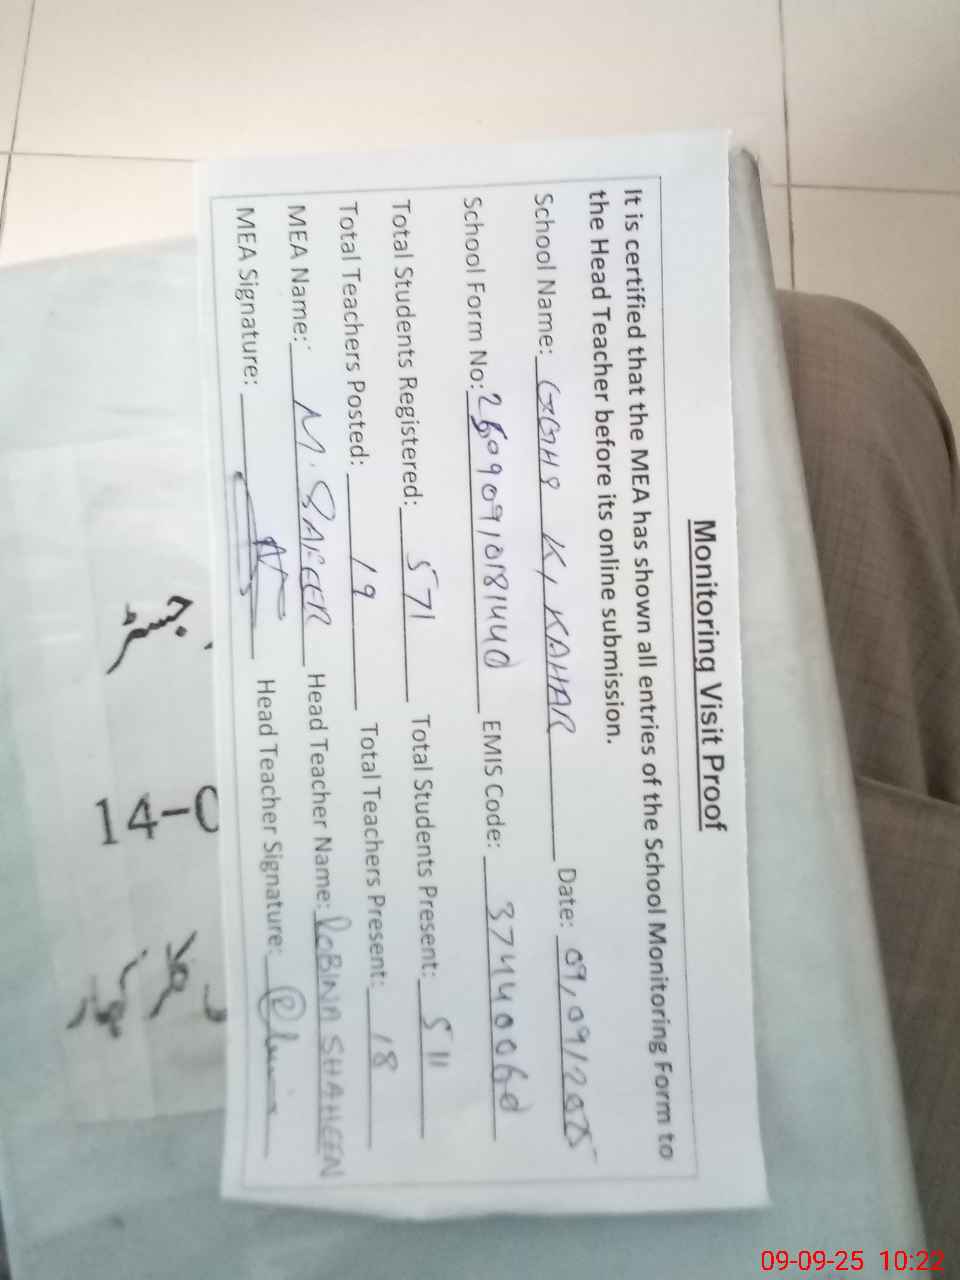 Monitoring Visit Proof
It is certified that the MEA has shown all entries of the School Monitoring Form to
the Head Teacher before its online submission.
School Name: GGHS KY KAHAR Date: 09/09/2025
School Form No: EMIS Code:
Total Students Registered: 571 Total Students Present: 511
Total Teachers Posted: 19 Total Teachers Present: 18
MEA Name: M. SAFEER Head Teacher Name: ROBINA SHAHEEN
MEA Signature: Head Teacher Signature:
14-0
09-09-25 10:22